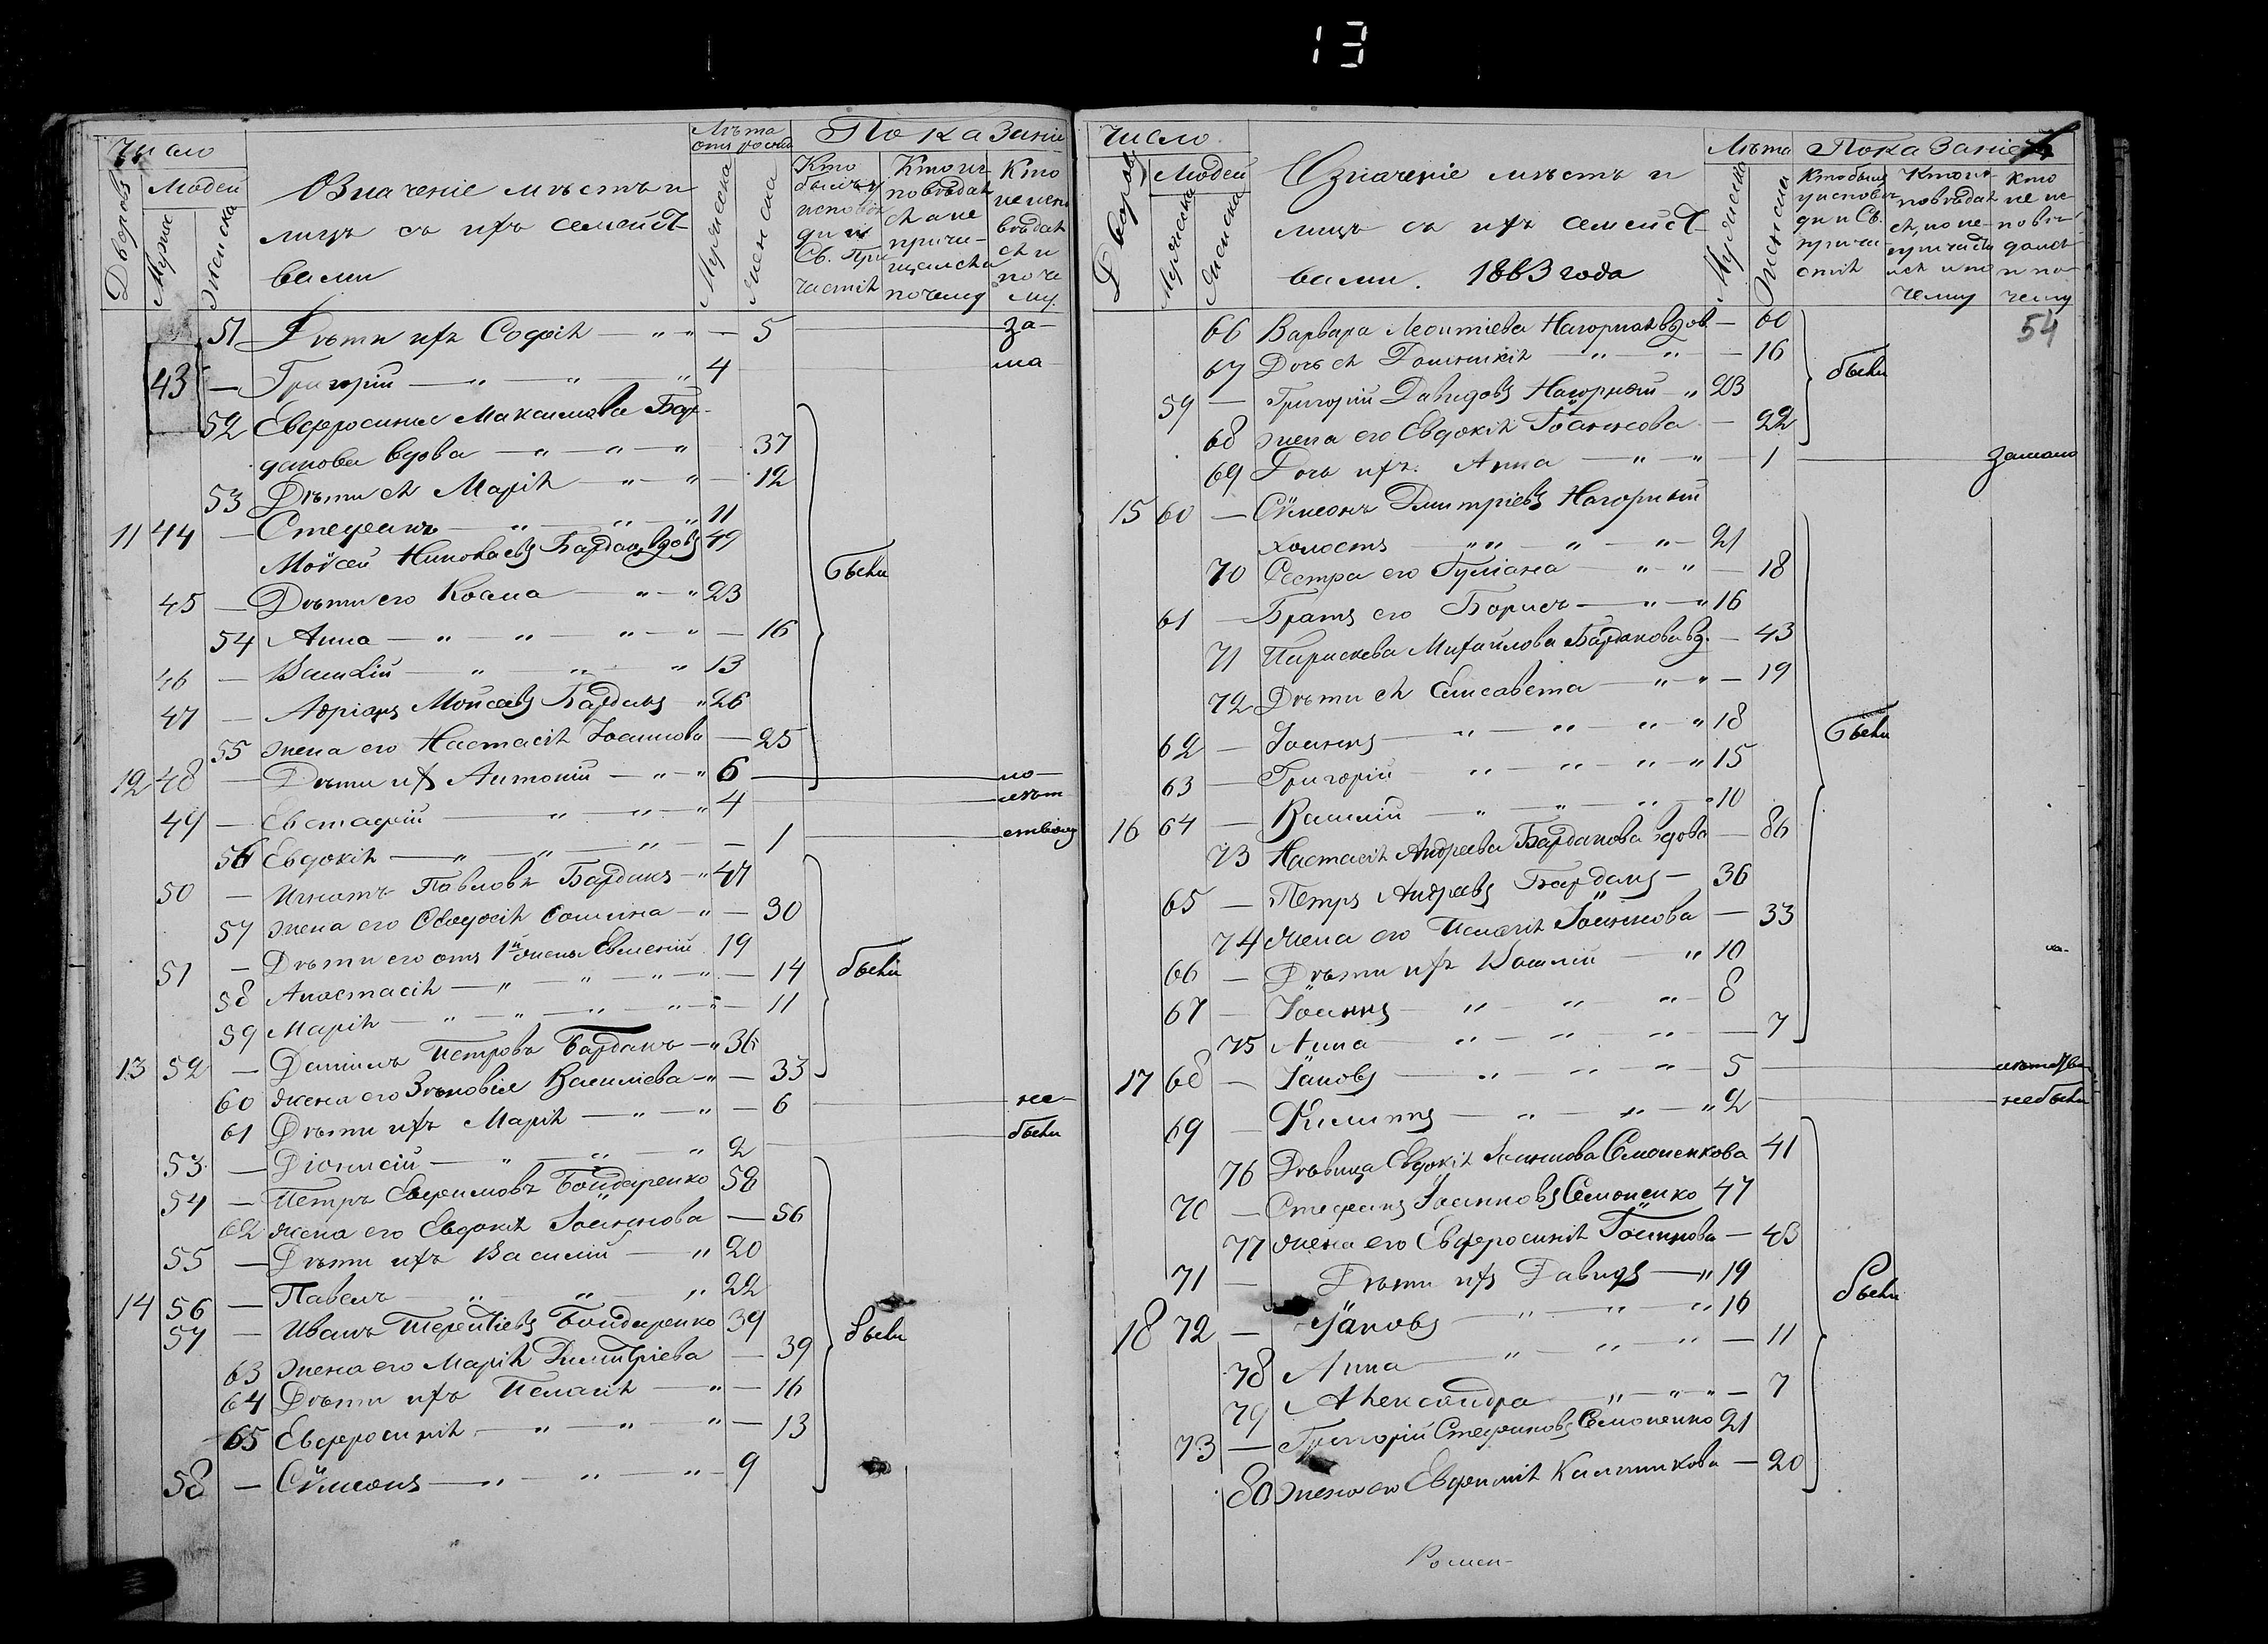 13
Число
Людей
Дворовъ
Мужска
Женска
Означеніе мѣстъ и
лицъ съ ихъ семейст-
вами
Лѣта отъ рожд
Мужска
Женска
Показаніи
Кто былъ у исповѣди и Св. Причастія
Кто исповѣдался а не причищался и почему
Кто не исповѣдался и почему
51 Дѣти ихъ Софія — 5 за-
43 — Григорій — 4 ма
52 Евфросинія Максимова Бар-
данова вдова — 37
53 Дѣти ея Марія — 12
— Стефанъ — 11
11 44 Мойсей Николаевъ Барданъ вдовъ 49
были
45 — Дѣти его Косма — 23
54 Анна — 16
46 — Василій — 13
47 — Адріанъ Мойсеевъ Барданъ 26
55 жена его Настасія Іоаннова — 25
12 48 — Дѣти ихъ Антоній — 6 по-
49 — Евстафій — 4
56 Евдокія — 1
50 — Игнатъ Павловъ Барданъ 47
57 жена его Феодосія — 30
51 — Дѣти его отъ 1й жены Евменій 19
были
58 Анастасія — 14
59 Марія — 11
13 52 — Даніилъ Петровъ Барданъ 36
60 жена его Зѣновія Василіева — 33
61 Дѣти ихъ Марія — 6 не-
53 — Діонисій — 2 были
54 — Петръ Евфимовъ Бондаренко 58
62 жена его Евдокія Іоаннова — 56
55 — Дѣти ихъ Василій — 20
14 56 — Павелъ — 22
57 — Иванъ Терентіевъ Бондаренко 39
были
63 жена его Марія Димитріева — 39
64 Дѣти ихъ Пелагія — 16
65 Евфросинія — 13
58 — Сѵмеонъ — 9
Число
Людей
Дворовъ
Мужска
Женска
Означеніе мѣстъ и
лицъ съ ихъ семейст-
вами. 1863 года
Лѣта
Мужска
Женска
Показаніе
Кто былъ у исповѣди и Св. Причастія
Кто исповѣдался, но не причастился и по чему
Кто не исповѣдался и по чему
54
66 Варвара Леонтіева Нагорная вдов. — 60
67 Дочь ея — 16
были
59 — Григорій Давидовъ Нагорный 23
68 жена его Евдокія Іоаннова — 22
69 Дочь ихъ Анна — 1 замало
15 60 — Сѵмеонъ Димитріевъ Нагорный
холостъ — 21
70 Сестра его Іуліана — 18
61 — Братъ его Борисъ — 16
71 Парискева Михайлова Барданова вд. — 43
72 Дѣти ея Елисавета — 19
62 — Іоаннъ — 18
были
63 — Григорій — 15
16 64 — Василій — 10
73 Настасія Андреева Барданова вдова — 86
65 — Петръ Андреевъ Барданъ — 36
74 жена его Пелагія Іоаннова — 33
66 — Дѣти ихъ Василій — 10
67 — Іоаннъ — 8
75 Анна — 7
17 68 — Іаковъ — 5
69 — Филиппъ — 2 не были
76 Дѣвица Евдокія Іоаннова Семоненкова 41
70 — Стефанъ Іоанновъ Семоненко 47
77 жена его Евфросинія Іоаннова — 43
71 — Дѣти ихъ Давидъ — 19
были
18 72 — Іаковъ — 16
78 Анна — 11
79 Александра — 7
73 — Григорій Стефановъ Семоненко 21
80 жена его Евфимія Калинникова — 20